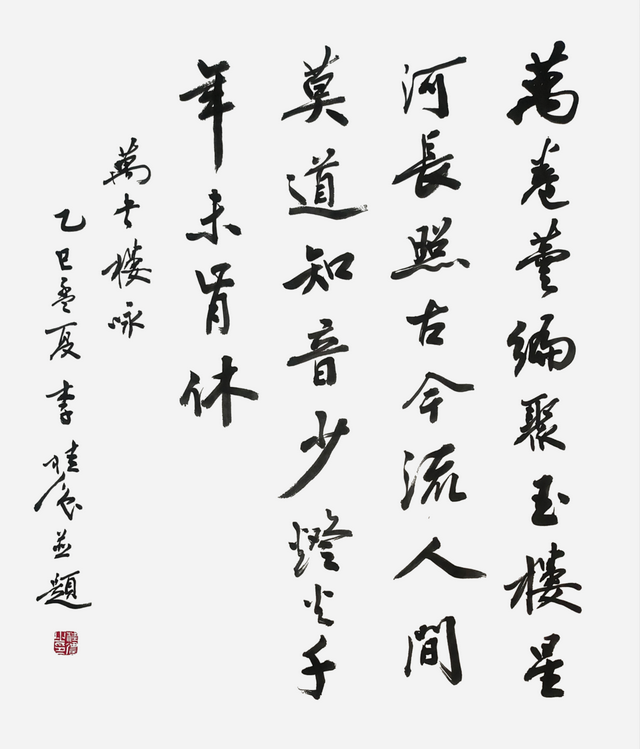 萬卷蕓編聚玉楼星
河長照古今流人間
莫道知音少燈火千
年未肯休
萬書楼咏
乙巳孟夏李並題